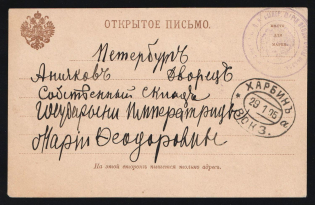 ОТКРЫТОЕ ПИСЬМО.
МѢСТО
ДЛЯ
МАРКИ
Петербургъ
Аничковъ Дворецъ
Собственный Складъ
Государыни Императрицы
Маріи Ѳеодоровны
ХАРБИНЪ
28 1 05
На этой сторонѣ пишется только адресъ.